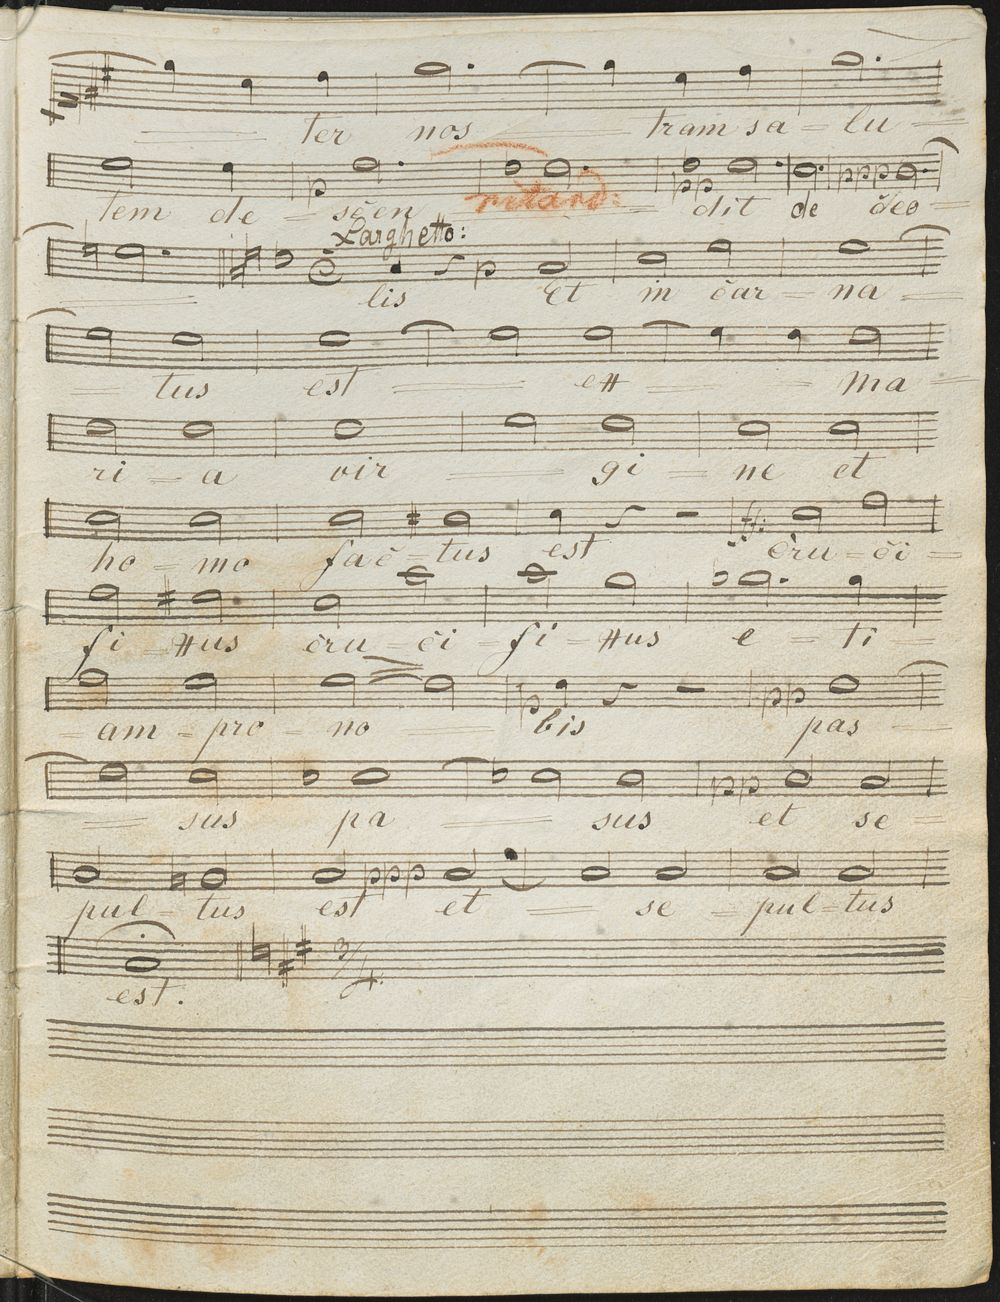 ter nos tram sa - lu
tem de - scen ritard: dit de coe
Larghetto:
lis Et in car - na
tus est ex ma
ri - a vir gi - ne et
ho - mo fac - tus est cru - ci -
fi - xus cru - ci - fi - xus e - ti
am - pro - no bis pas
sus pa sus et se
pul - tus est et se - pul - tus
3/4
est.